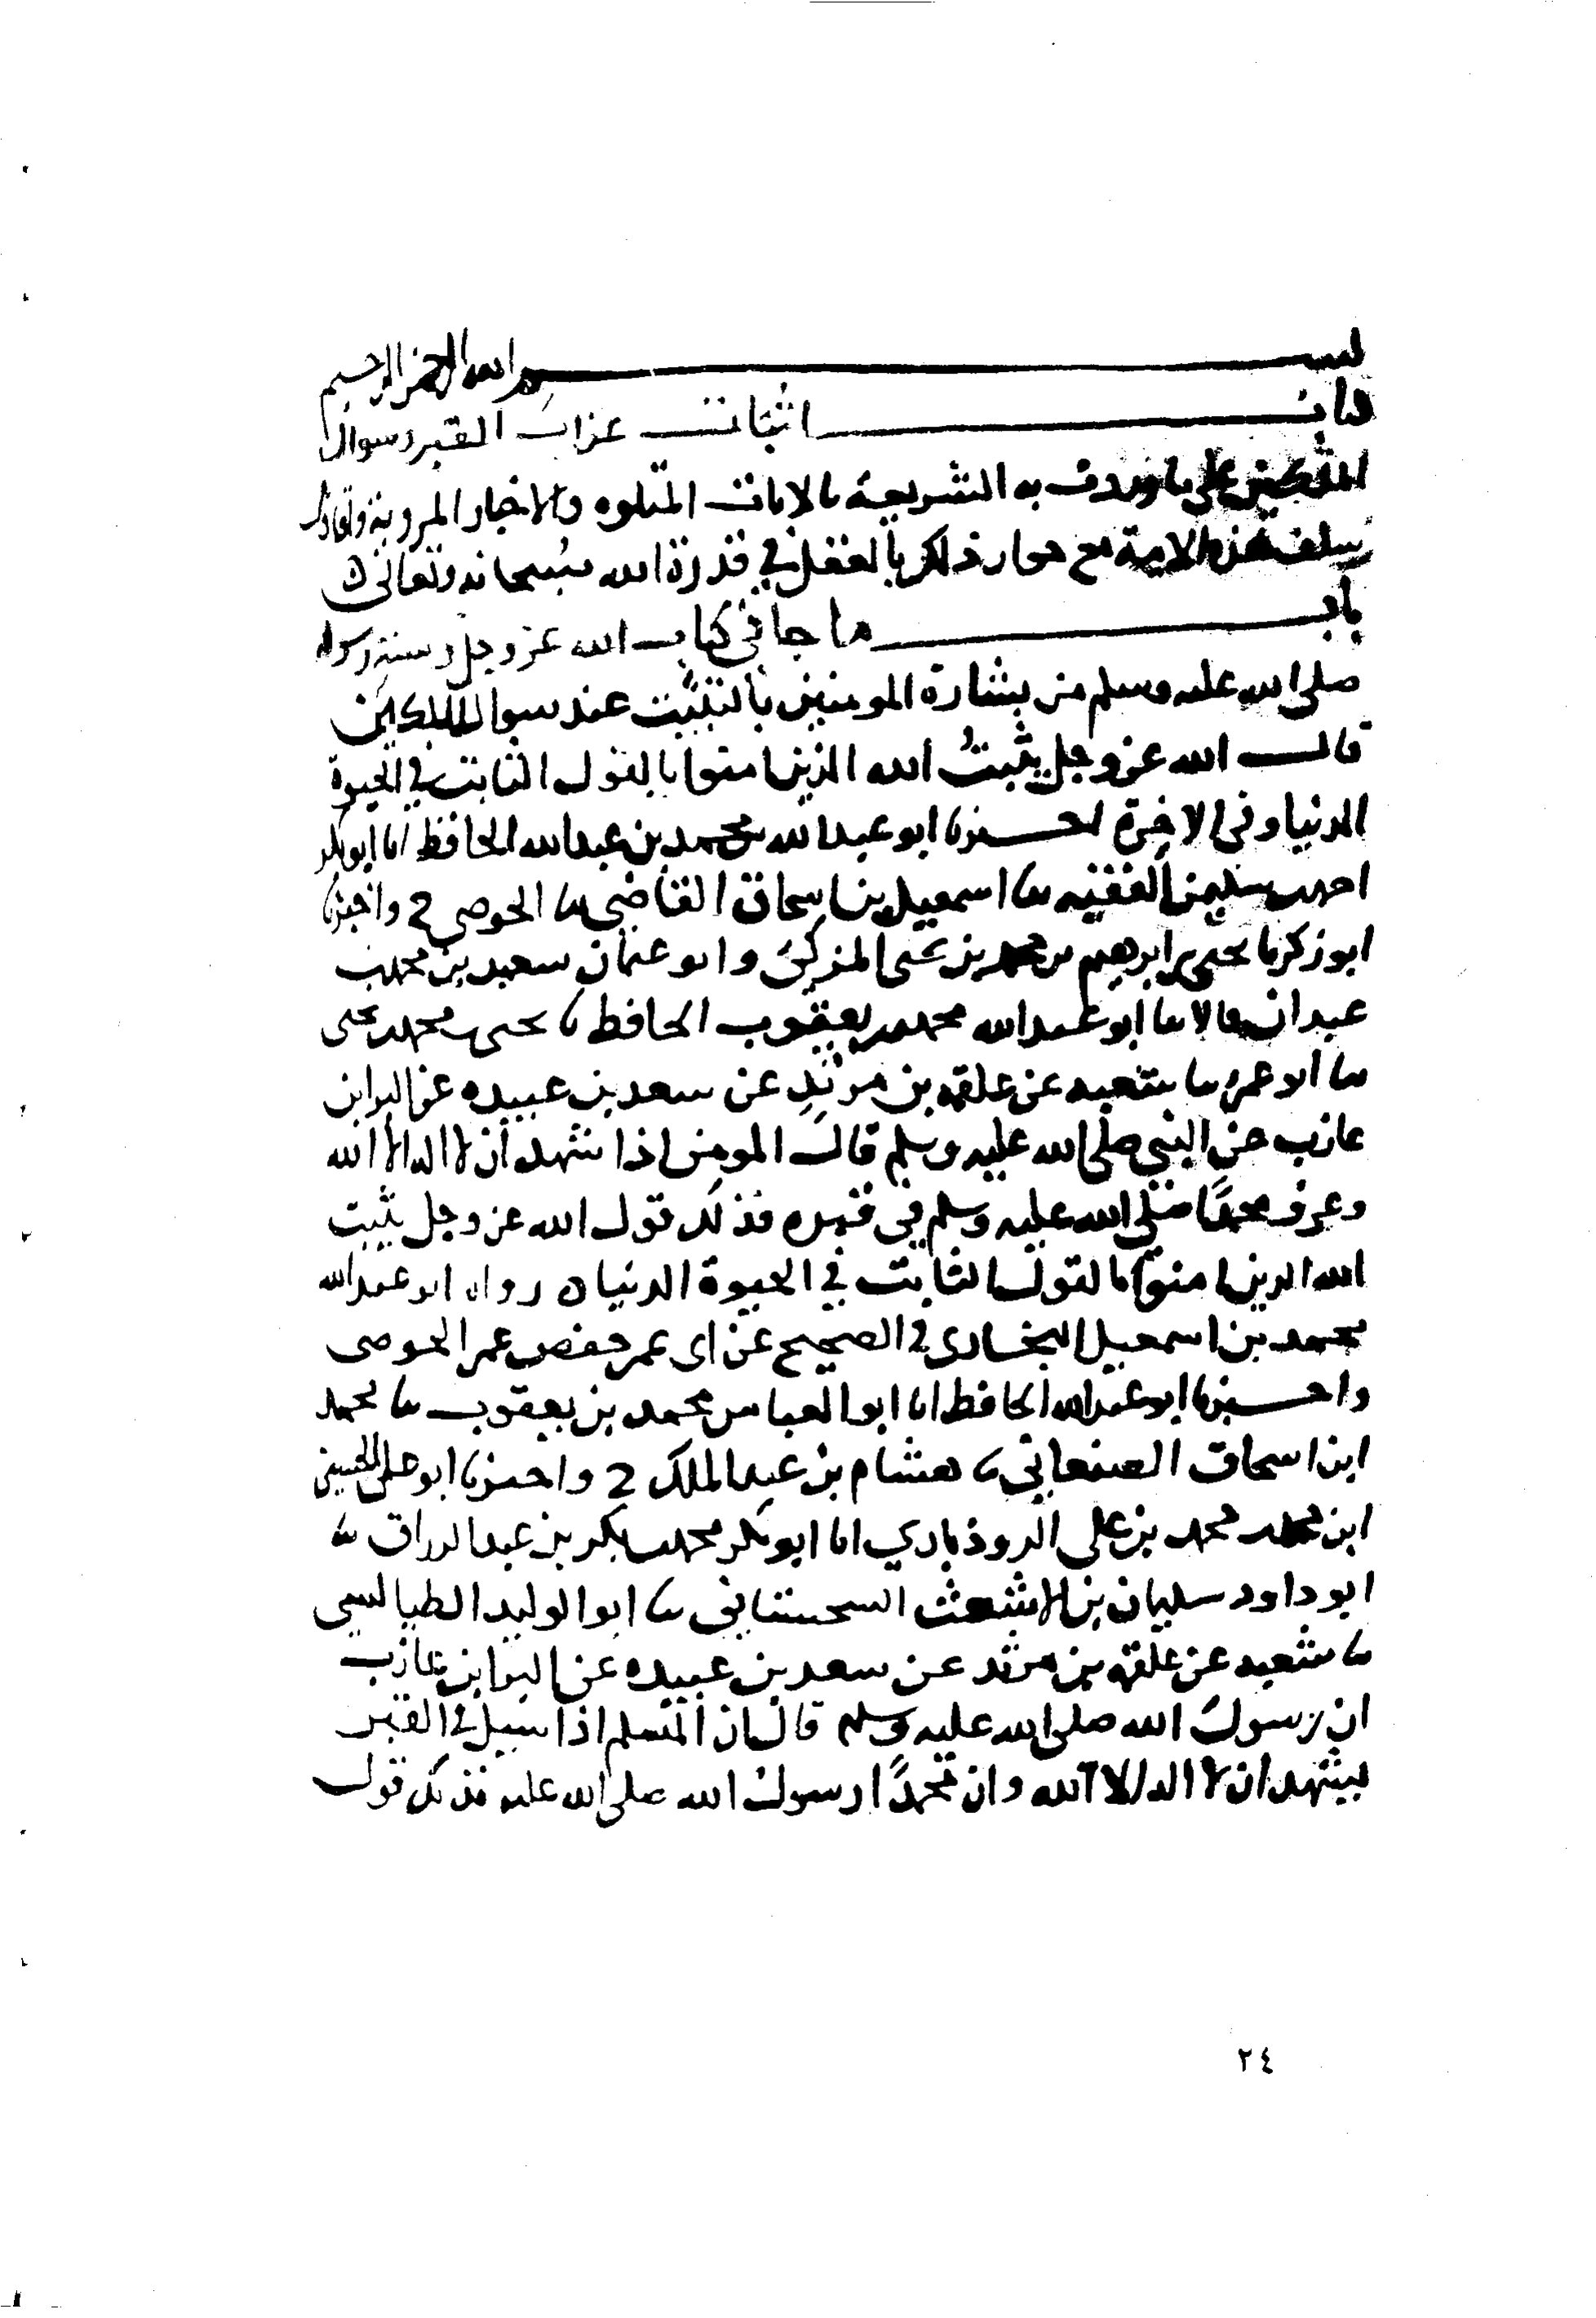 بسم الله الرحمن الرحيم
كتاب اثبات عذاب القبر وسوال
الملكين على ما وردت به الشريعة بالايات المتلوه والاخبار المروية واقاويل
سلف هذه الامة مع جواز ذلك بالعقل في قدرة الله سبحانه وتعالى ه
باب ما جا في كتاب الله عز وجل وسنة رسوله
صلى الله عليه وسلم من بشارة المومنين بالتثبيت عند سوال الملكين
قال الله عز وجل يثبتُ الله الذين امنوا بالقول الثابت في الحيوة
الدنيا وفي الاخرة اخبرنا ابو عبد الله محمد بن عبد الله الحافظ انا ابو بكر
احمد بن سليمن الفقيه ثنا اسمعيل بن اسحاق القاضي ثنا الحوضي ح واخبرنا
ابو زكريا يحيى بن ابرهيم بن محمد بن يحيى المزكي وابو عثمان سعيد بن محمد بن
عبدان قالا ثنا ابو عبد الله محمد بن يعقوب الحافظ ثنا يحيى بن محمد بن يحيى
ثنا ابو عمر ثنا شعبه عن علقمه بن مرثد عن سعد بن عبيده عن البرا بن
عازب عن النبي صلى الله عليه وسلم قال المومن اذا شهد ان لا اله الا الله
وعرف محمدًا صلى الله عليه وسلم في قبره فذلك قول الله عز وجل يثبت
الله الذين امنوا بالقول الثابت في الحيوة الدنيا ه رواه ابو عبد الله
محمد بن اسمعيل البخاري في الصحيح عن ابي عمر حفص بن عمر الحوضي
واخبرنا ابو عبد الله الحافظ انا ابو العباس محمد بن يعقوب ثنا محمد
ابن اسحاق الصنعاني ثنا هشام بن عبد الملك ح واخبرنا ابو علي الحسين
ابن محمد بن محمد بن علي الروذباري انا ابو بكر محمد بن بكر بن عبد الرزاق ثنا
ابو داود سليمان بن الاشعث السجستاني ثنا ابو الوليد الطيالسي
ثنا شعبه عن علقمه بن مرثد عن سعد بن عبيده عن البرا بن عازب
ان رسول الله صلى الله عليه وسلم قال ان المسلم اذا سيل في القبر
يشهد ان لا اله الا الله وان محمدًا رسول الله صلى الله عليه فذلك قول
٢٤